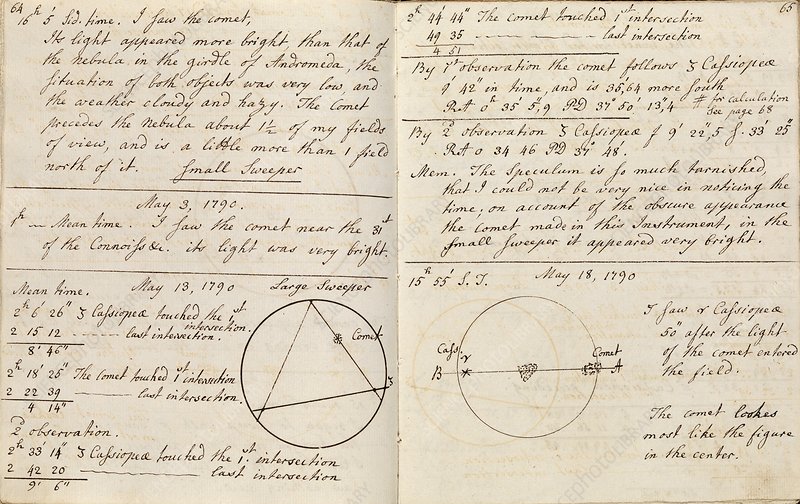 64
16h 5' Sid. time. I saw the comet,
Its light appeared more bright, than that of
the nebula in the girdle of Andromeda, the
situation of both objects was very low, and
the weather cloudy and hazy. The Comet
precedes the nebula about 1½ of my fields
of view, and is a little more than 1 field
north of it. Small Sweeper
May 3, 1790.
h — Mean time. I saw the comet near the 31st
of the Connoiss &c. its light was very bright.
Mean time. May 13, 1790 Large Sweeper
2h 6' 26" ζ Cassiopeæ touched the 1st intersection.
2 15 12 —— last intersection.
8' 46"
2h 18' 25" The comet touched 1st intersection
2 22 39 —— last intersection.
4 14"
2d observation.
2h 33' 14" ζ Cassiopeæ touched the 1st intersection
2 42 20 —— last intersection
9' 6"
Comet
ζ
65
2h 44' 44" The comet touched 1st intersection
49 35 —— last intersection
4 51
By 1st observation the comet follows ζ Cassiopeæ
9' 42" in time, and is 35',64 more south
RA 0h 35' 5",9 PD 37° 50' 13",4 # for calculation
see page 68
By 2d observation ζ Cassiopeæ f 9' 22",5 S. 33' 25"
RA 0 34 46 PD 37° 48'.
Mem. The Speculum is so much tarnished,
that I could not be very nice in noticing the
time, on account of the obscure appearance
the comet made in this Instrument, in the
small sweeper it appeared very bright.
15h 55' S.T. May 18, 1790
Cass
γ
B
Comet
A
I saw γ Cassiopeæ
50" after the light
of the comet entered
the field.
The comet lookes
most like the figure
in the center.